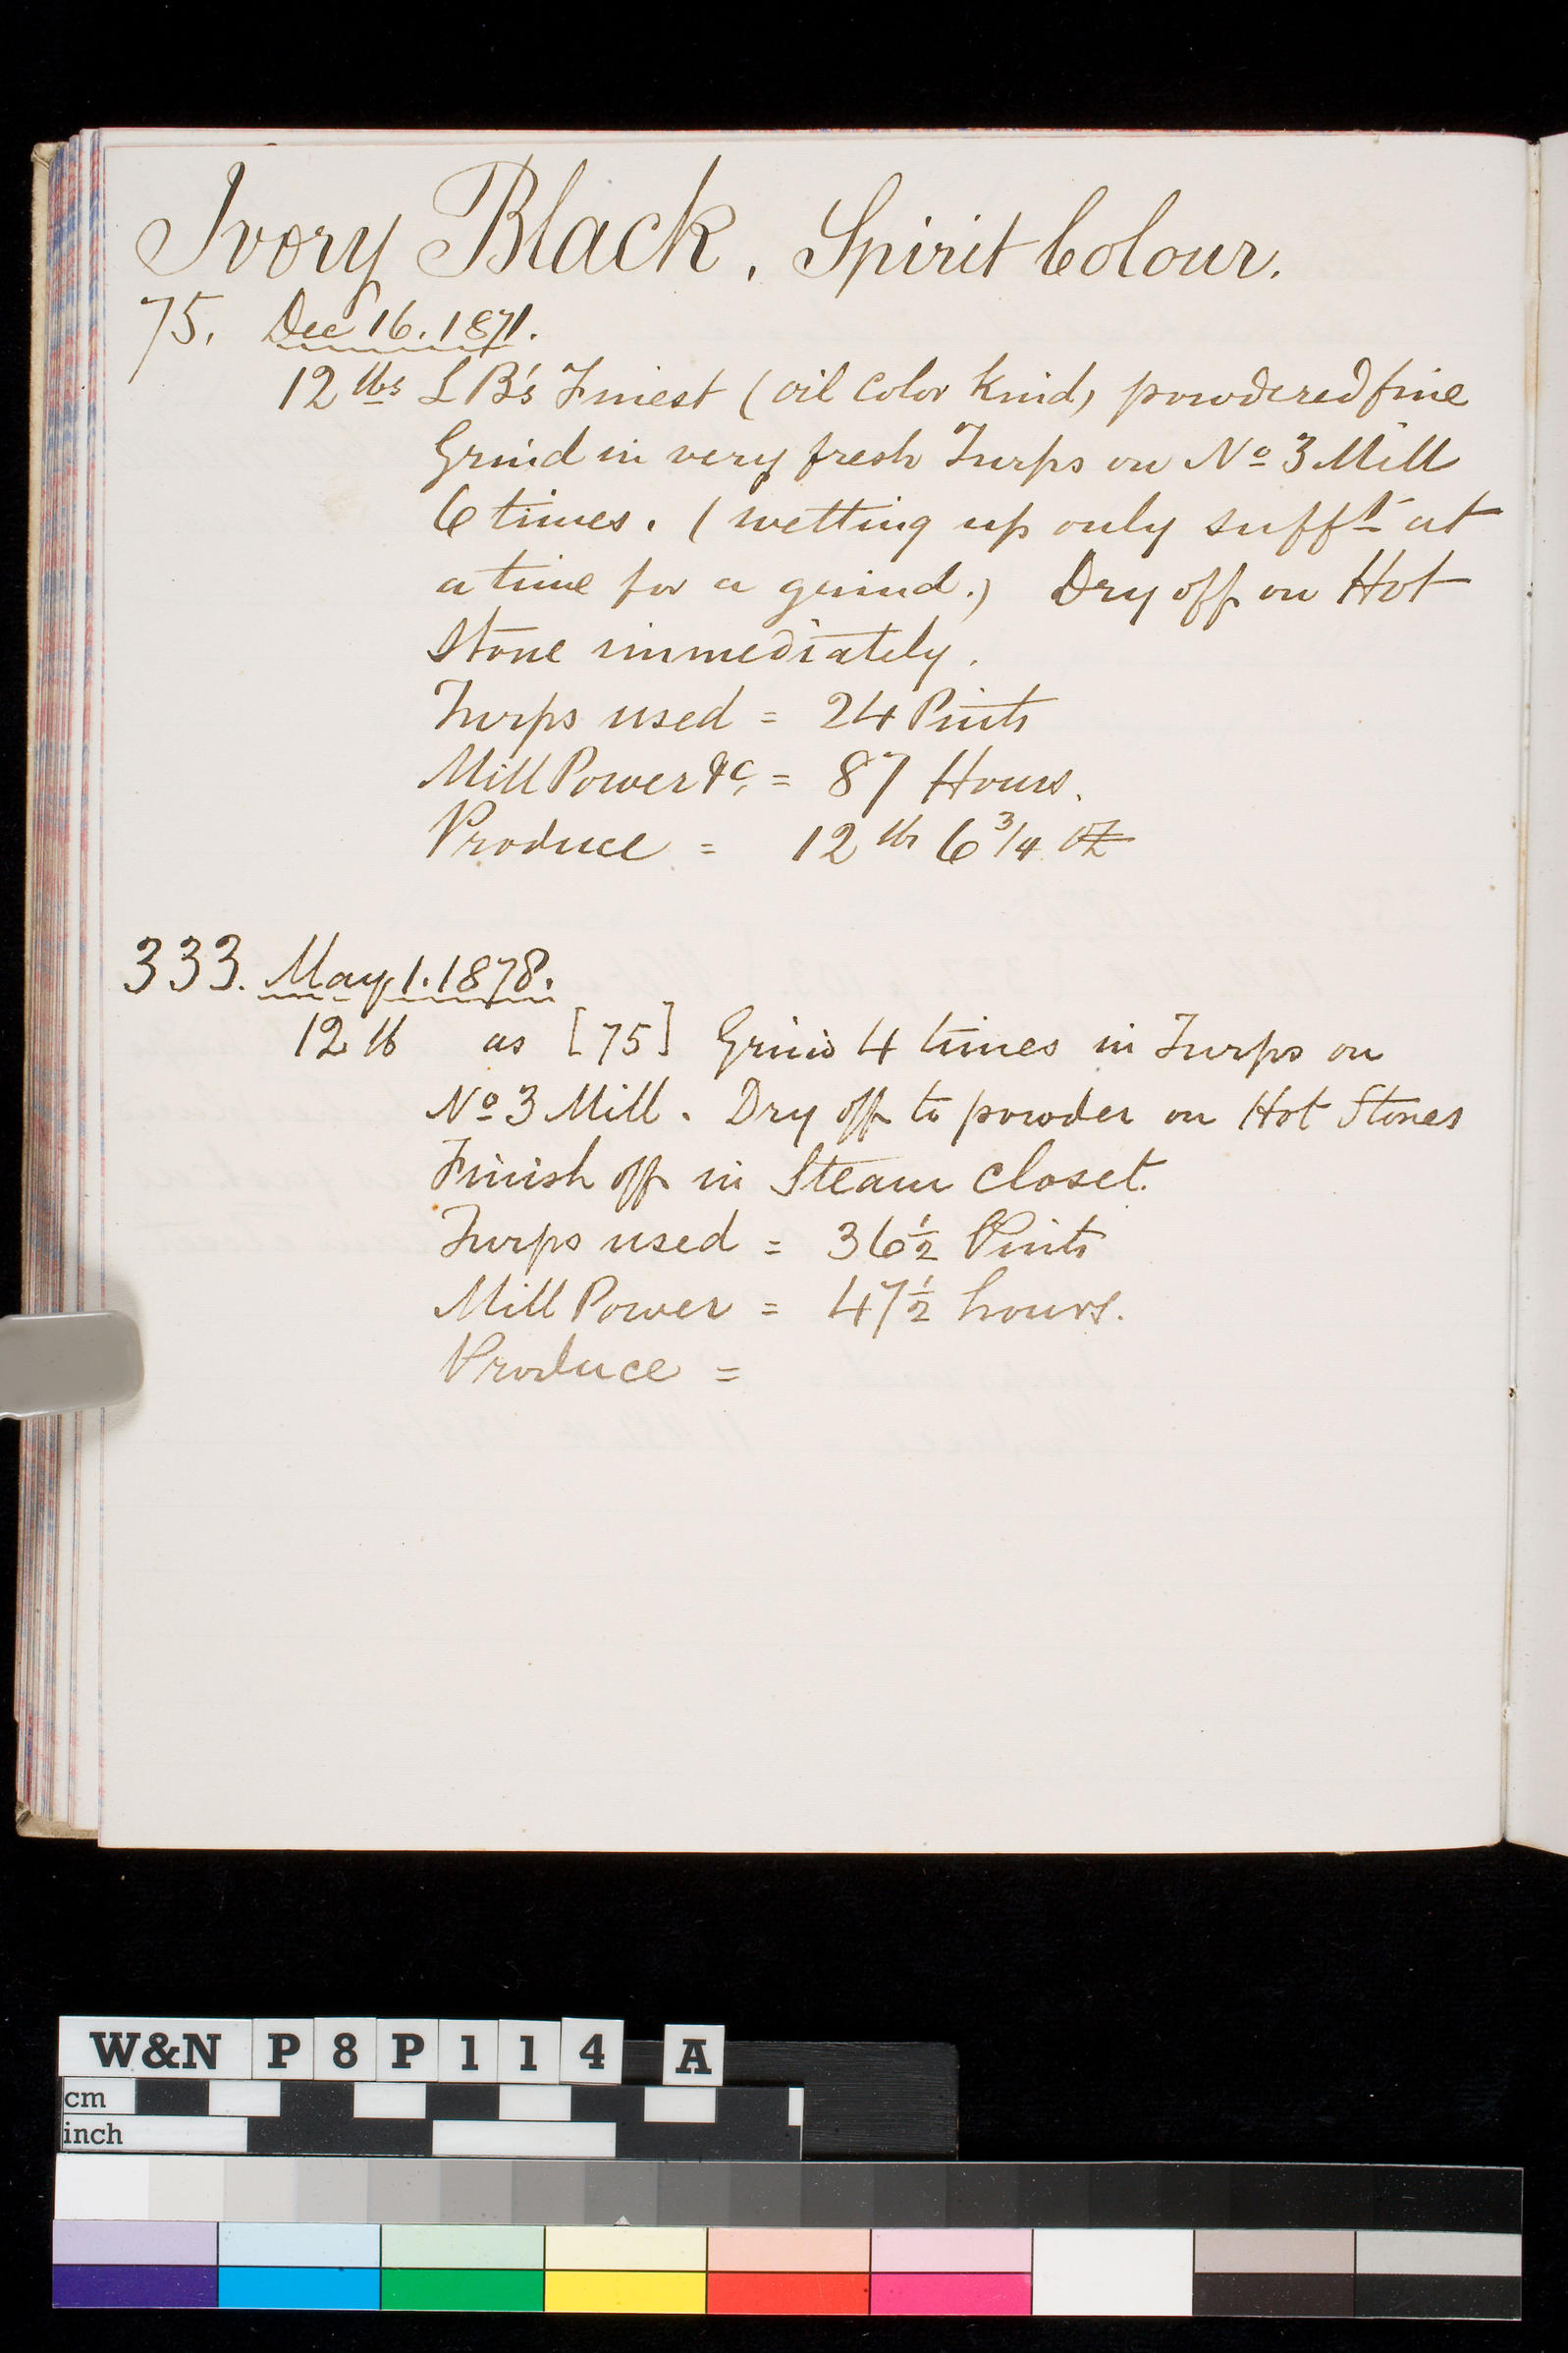 Ivory Black. Spirit Colour.
75. Dec 16. 1871.
12 lbs LB's Finest (oil color kind) powdered fine
Grind in very fresh Turps on No 3 Mill
6 times. (wetting up only sufft at
a time for a grind.) Dry off on Hot
Stone immediately.
Turps used = 24 Pints
Mill Power &c. = 87 Hours.
Produce = 12 lb 6 3/4 oz
333. May 1. 1878.
12 lb as [75] Grind 4 times in Turps on
No 3 Mill. Dry off to powder on Hot Stones
Finish off in Steam Closet.
Turps used = 36 1/2 Pints
Mill Power = 47 1/2 hours.
Produce =
W&N P8P114 A
cm
inch